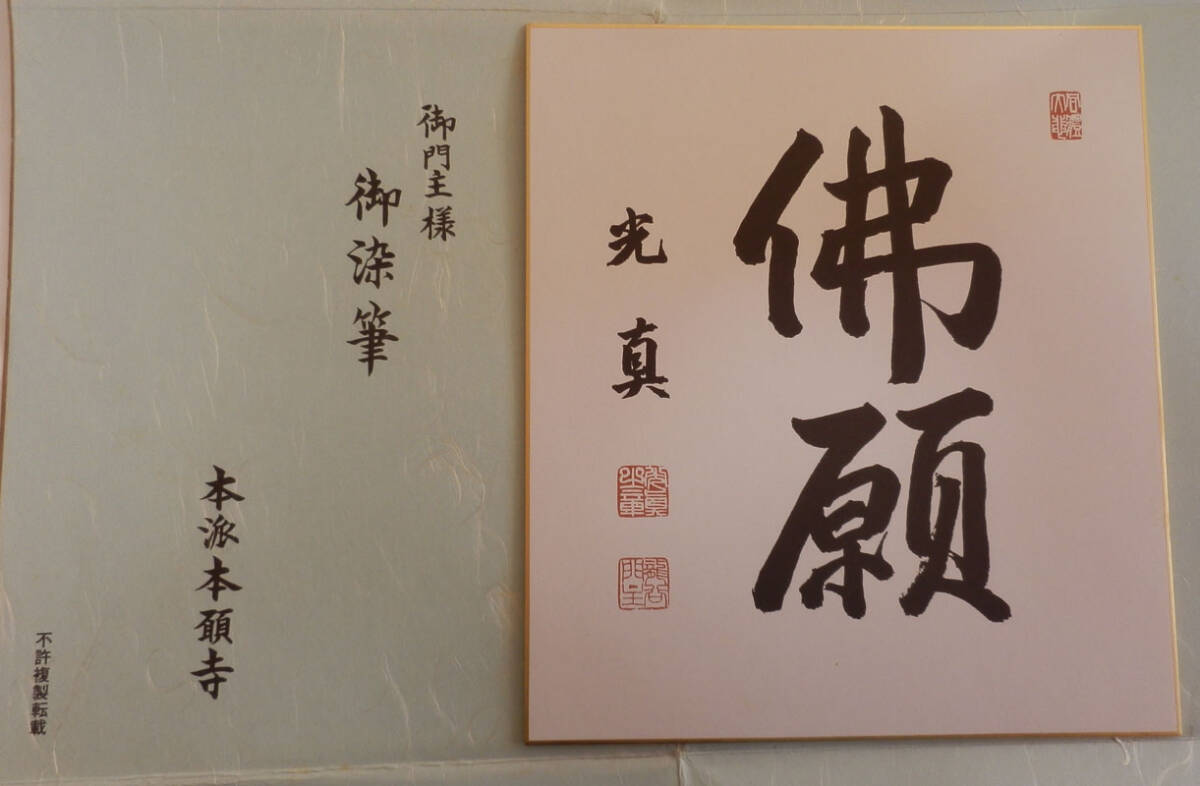 佛願
光真
御門主様
御染筆
本派本願寺
不許複製転載